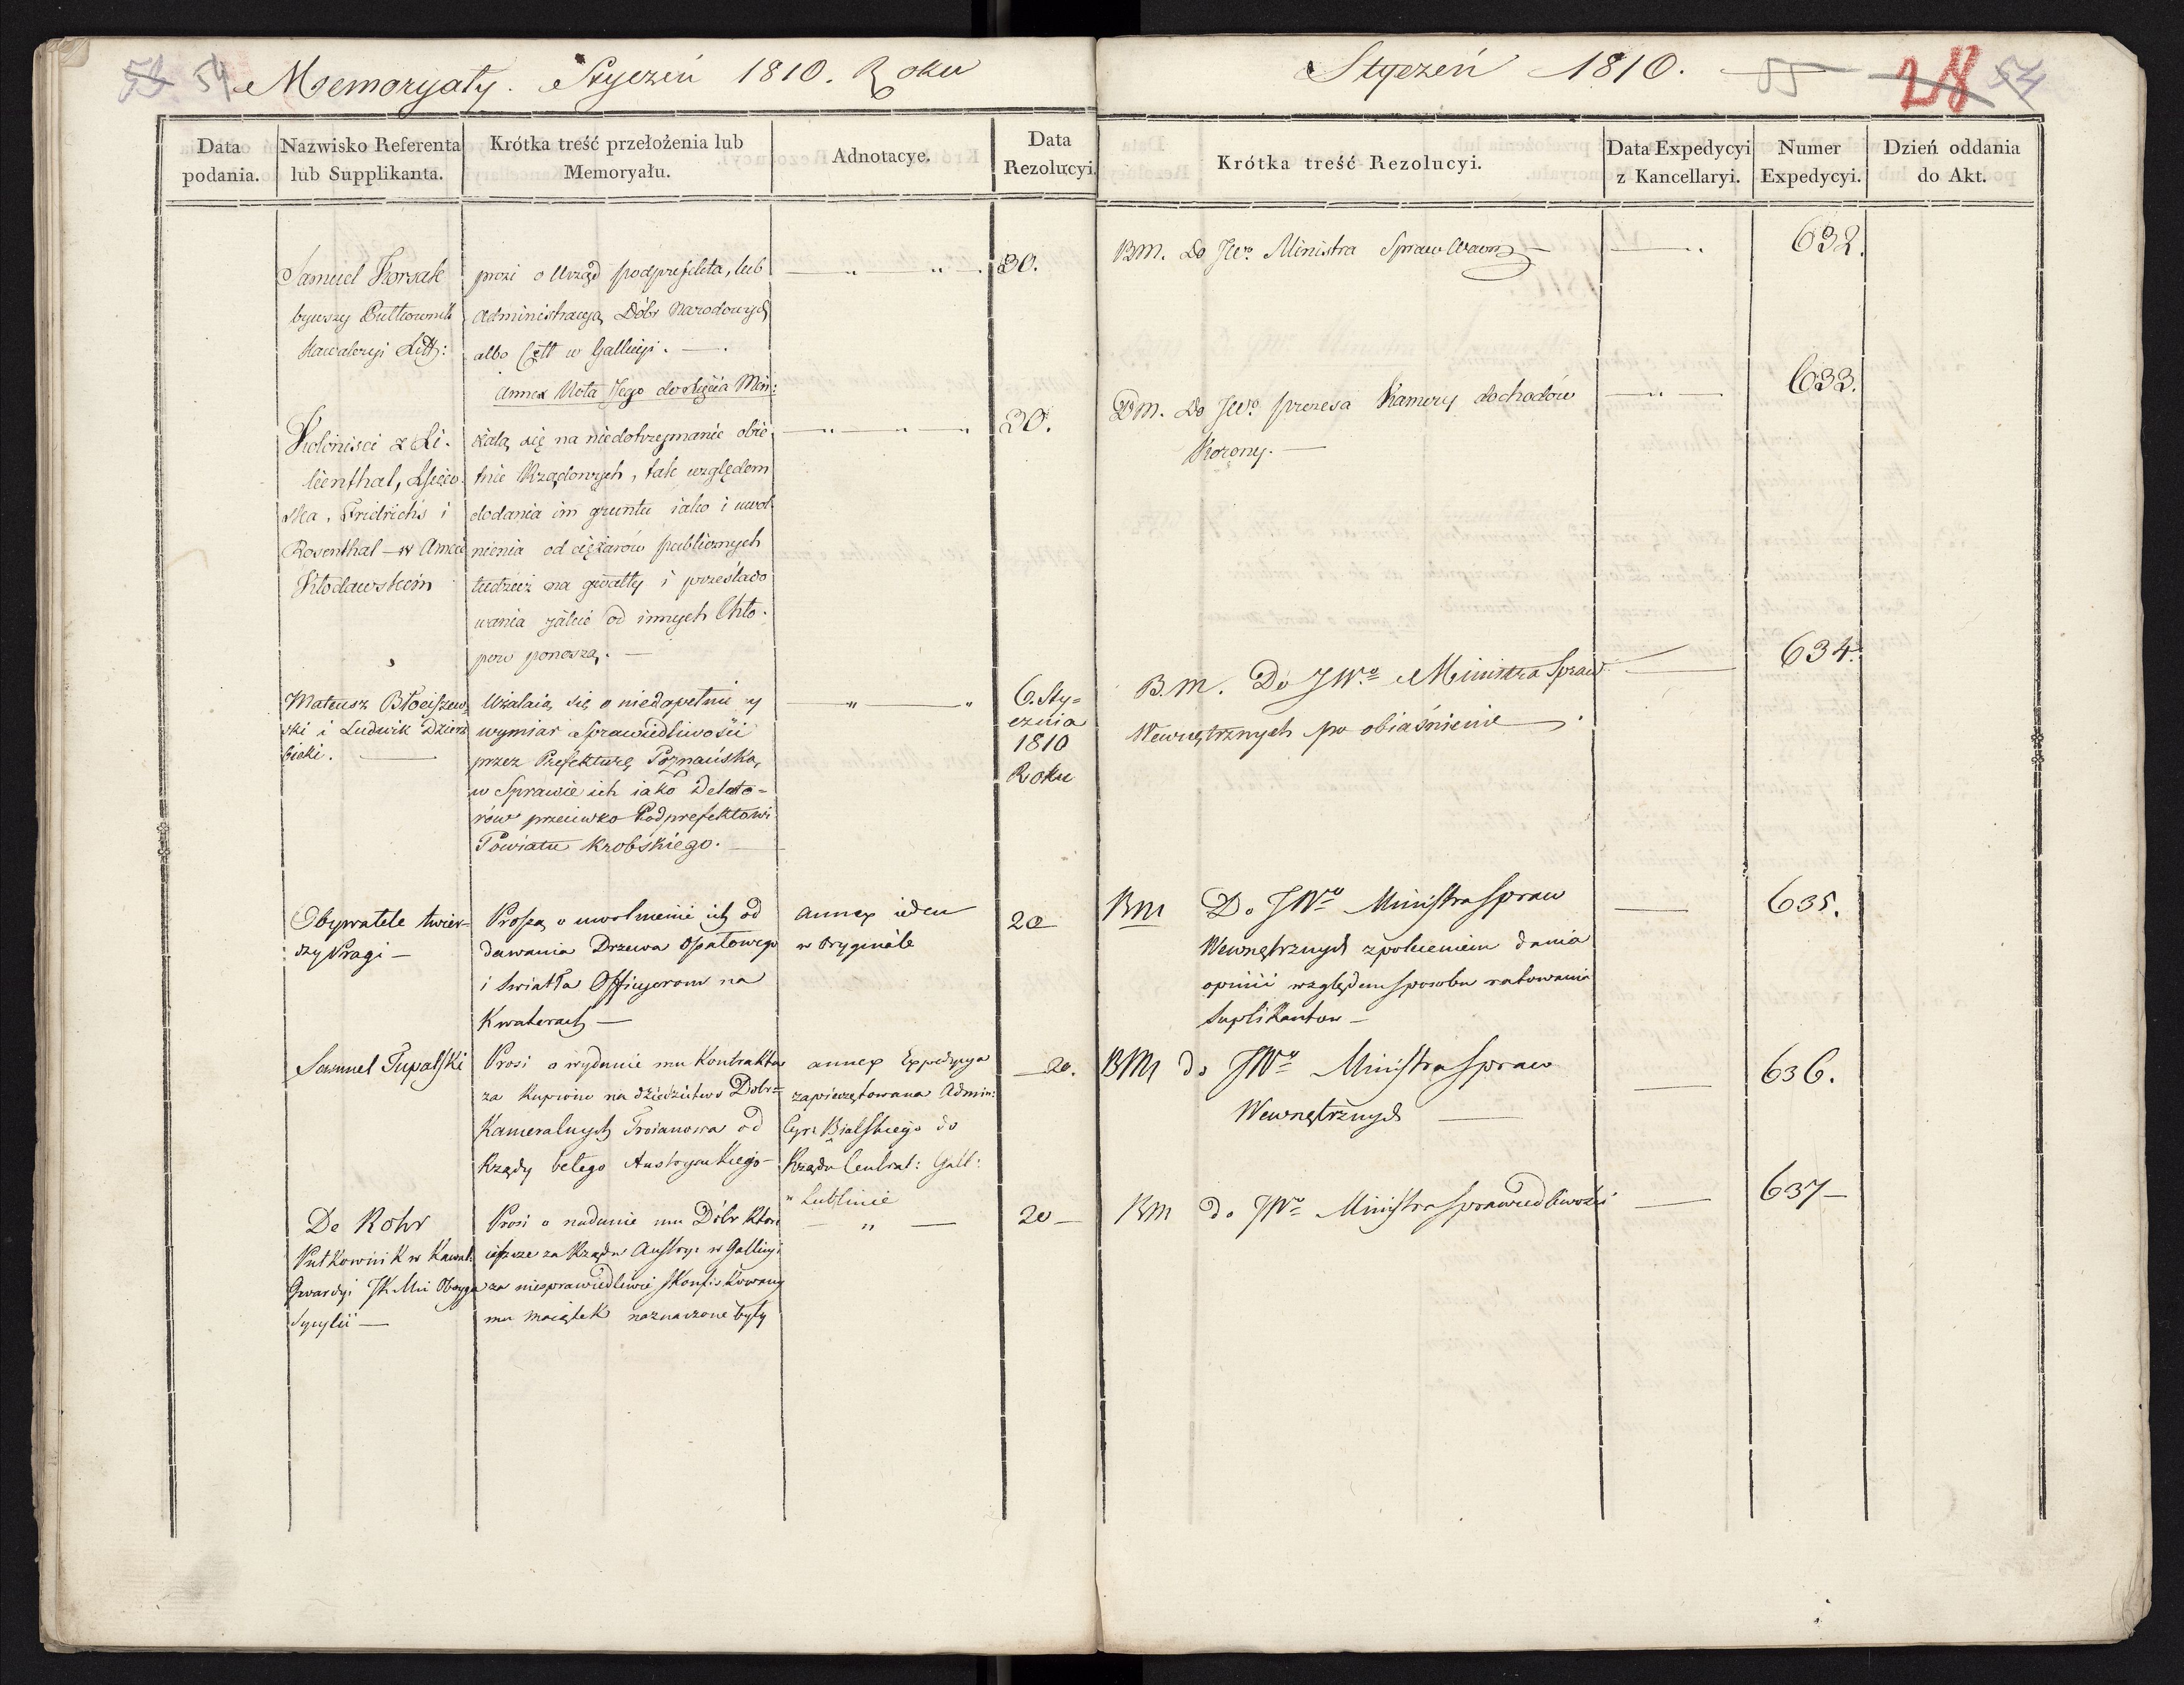 54 Memoryały. Styczeń 1810. Roku
Data podania.
Nazwisko Referenta lub Supplikanta.
Krótka treść przełożenia lub Memoryału.
Adnotacye.
Data Rezolucyi
Samuel Korsak
bywszy Pułkownik
Kawaleryi Litt:
prozi o Urząd podprefekta, lub
Administracyą Dóbr Narodowych
albo Cełł w Gallicyi. —.
Annex Nota Jego do Xięcia Min:
— „ „ —.
30.
Kolonisci z Li-
lienthal,
ska, Fridrichs i
Rosenthal — w Amcie
Kłodawskim
żalą się na niedotrzymanie obie-
tnic Rządowych, tak względem
dodania im gruntu iako i uwol
nienia od ciężarów publicznych
tudzież na gwałty i prześlado
wania jakie od innych Chło-
pow ponoszą. —
— „ — „ — „
30.
Mateusz Błociszew-
ski i Ludwik Dzierz
bicki. —
Użalaią się o niedopełniony
wymiar Sprawiedliwości
przez Prefekturę Poznańską,
w Sprawie ich iako Delato-
rów przeciwko Podprefektowi
Powiatu Krobskiego. —
— „ — „
6. Sty-
cznia
1810
Roku
Obywatele twier-
dzy Pragi —
Proszą o uwolnienie ich od
dawania Drzewa Opałowego
i Swiatła Officyerom na
Kwaterach —
Annex ieden
w Oryginale
20
Samuel Tupalski
Prosi o wydanie mu Kontraktu
za Kupione na dziedzictwo Dobr
Kameralnych Troianowa od
Rządy bełego Austryackiego —
annex Expedycya
zapieczętowana Admin:
Cyrk: Bialskiego do
Rządu Central: Gall:
w Lublinie
— 20.
De Rohr
Pułkownik w Kawal:
Gwardyi JK Mci Oboyga
Sycylii —
Prosi o nadanie mu Dóbr które
ieszcze za Rządu Austry: w Gallicyi
za niesprawiedliwie skonfiskowany
mu maiątek naznaczone były
— „ —
20 —
Styczeń 1810. 55 28 54
Krótka treść Rezolucyi.
Data Expedycyi z Kancellaryi.
Numer Expedycyi.
Dzień oddania do Akt.
BM. Do JWo Ministra Spraw Wewn —
632.
BM. Do JWo prezesa Kamery dochodów
Korony. —
— „ —
633.
B.M. Do JWo Ministra Spraw
Wewnętrznych po obiaśnienie — .
634.
BM Do JWo Ministra Spraw
Wewnętrznych z poleceniem dania
opinii względem sposobu ratowania
Suplikantow —
635.
BM do JWo Ministra Spraw
Wewnętrznych —
636.
BM do JWo Ministra Sprawiedliwości
637 —